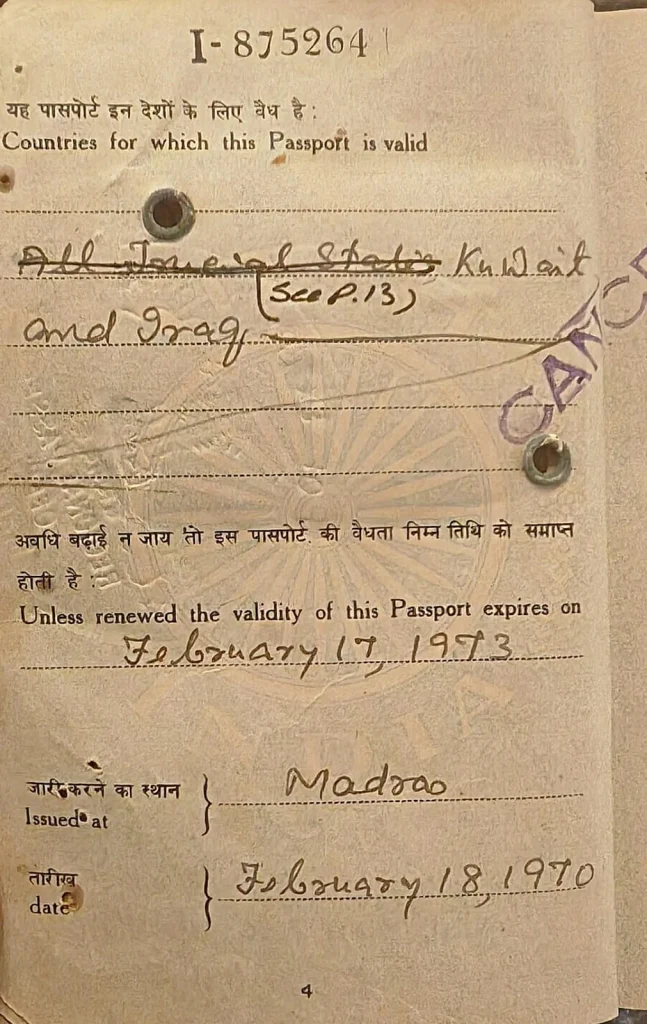 I-875264
यह पासपोर्ट इन देशों के लिए वैध है :
Countries for which this Passport is valid
All Trucial States Kuwait
(See P.13)
and Iraq
CANC
अवधि बढ़ाई न जाय तो इस पासपोर्ट की वैधता निम्न तिथि को समाप्त
होती है :
Unless renewed the validity of this Passport expires on
February 17, 1973
INDIA
जारी करने का स्थान
Issued at
Madras
तारीख
date
February 18, 1970
4